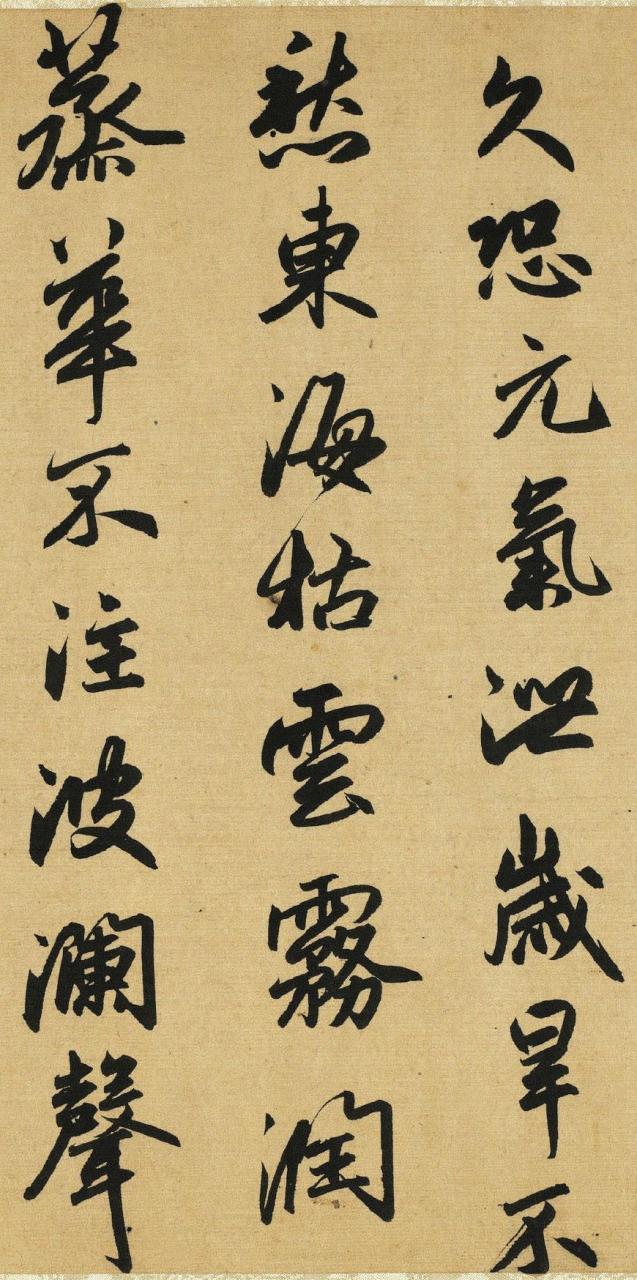 久恐元氣泄歲旱不
愁東海枯雲霧潤
蒸華不注波瀾聲